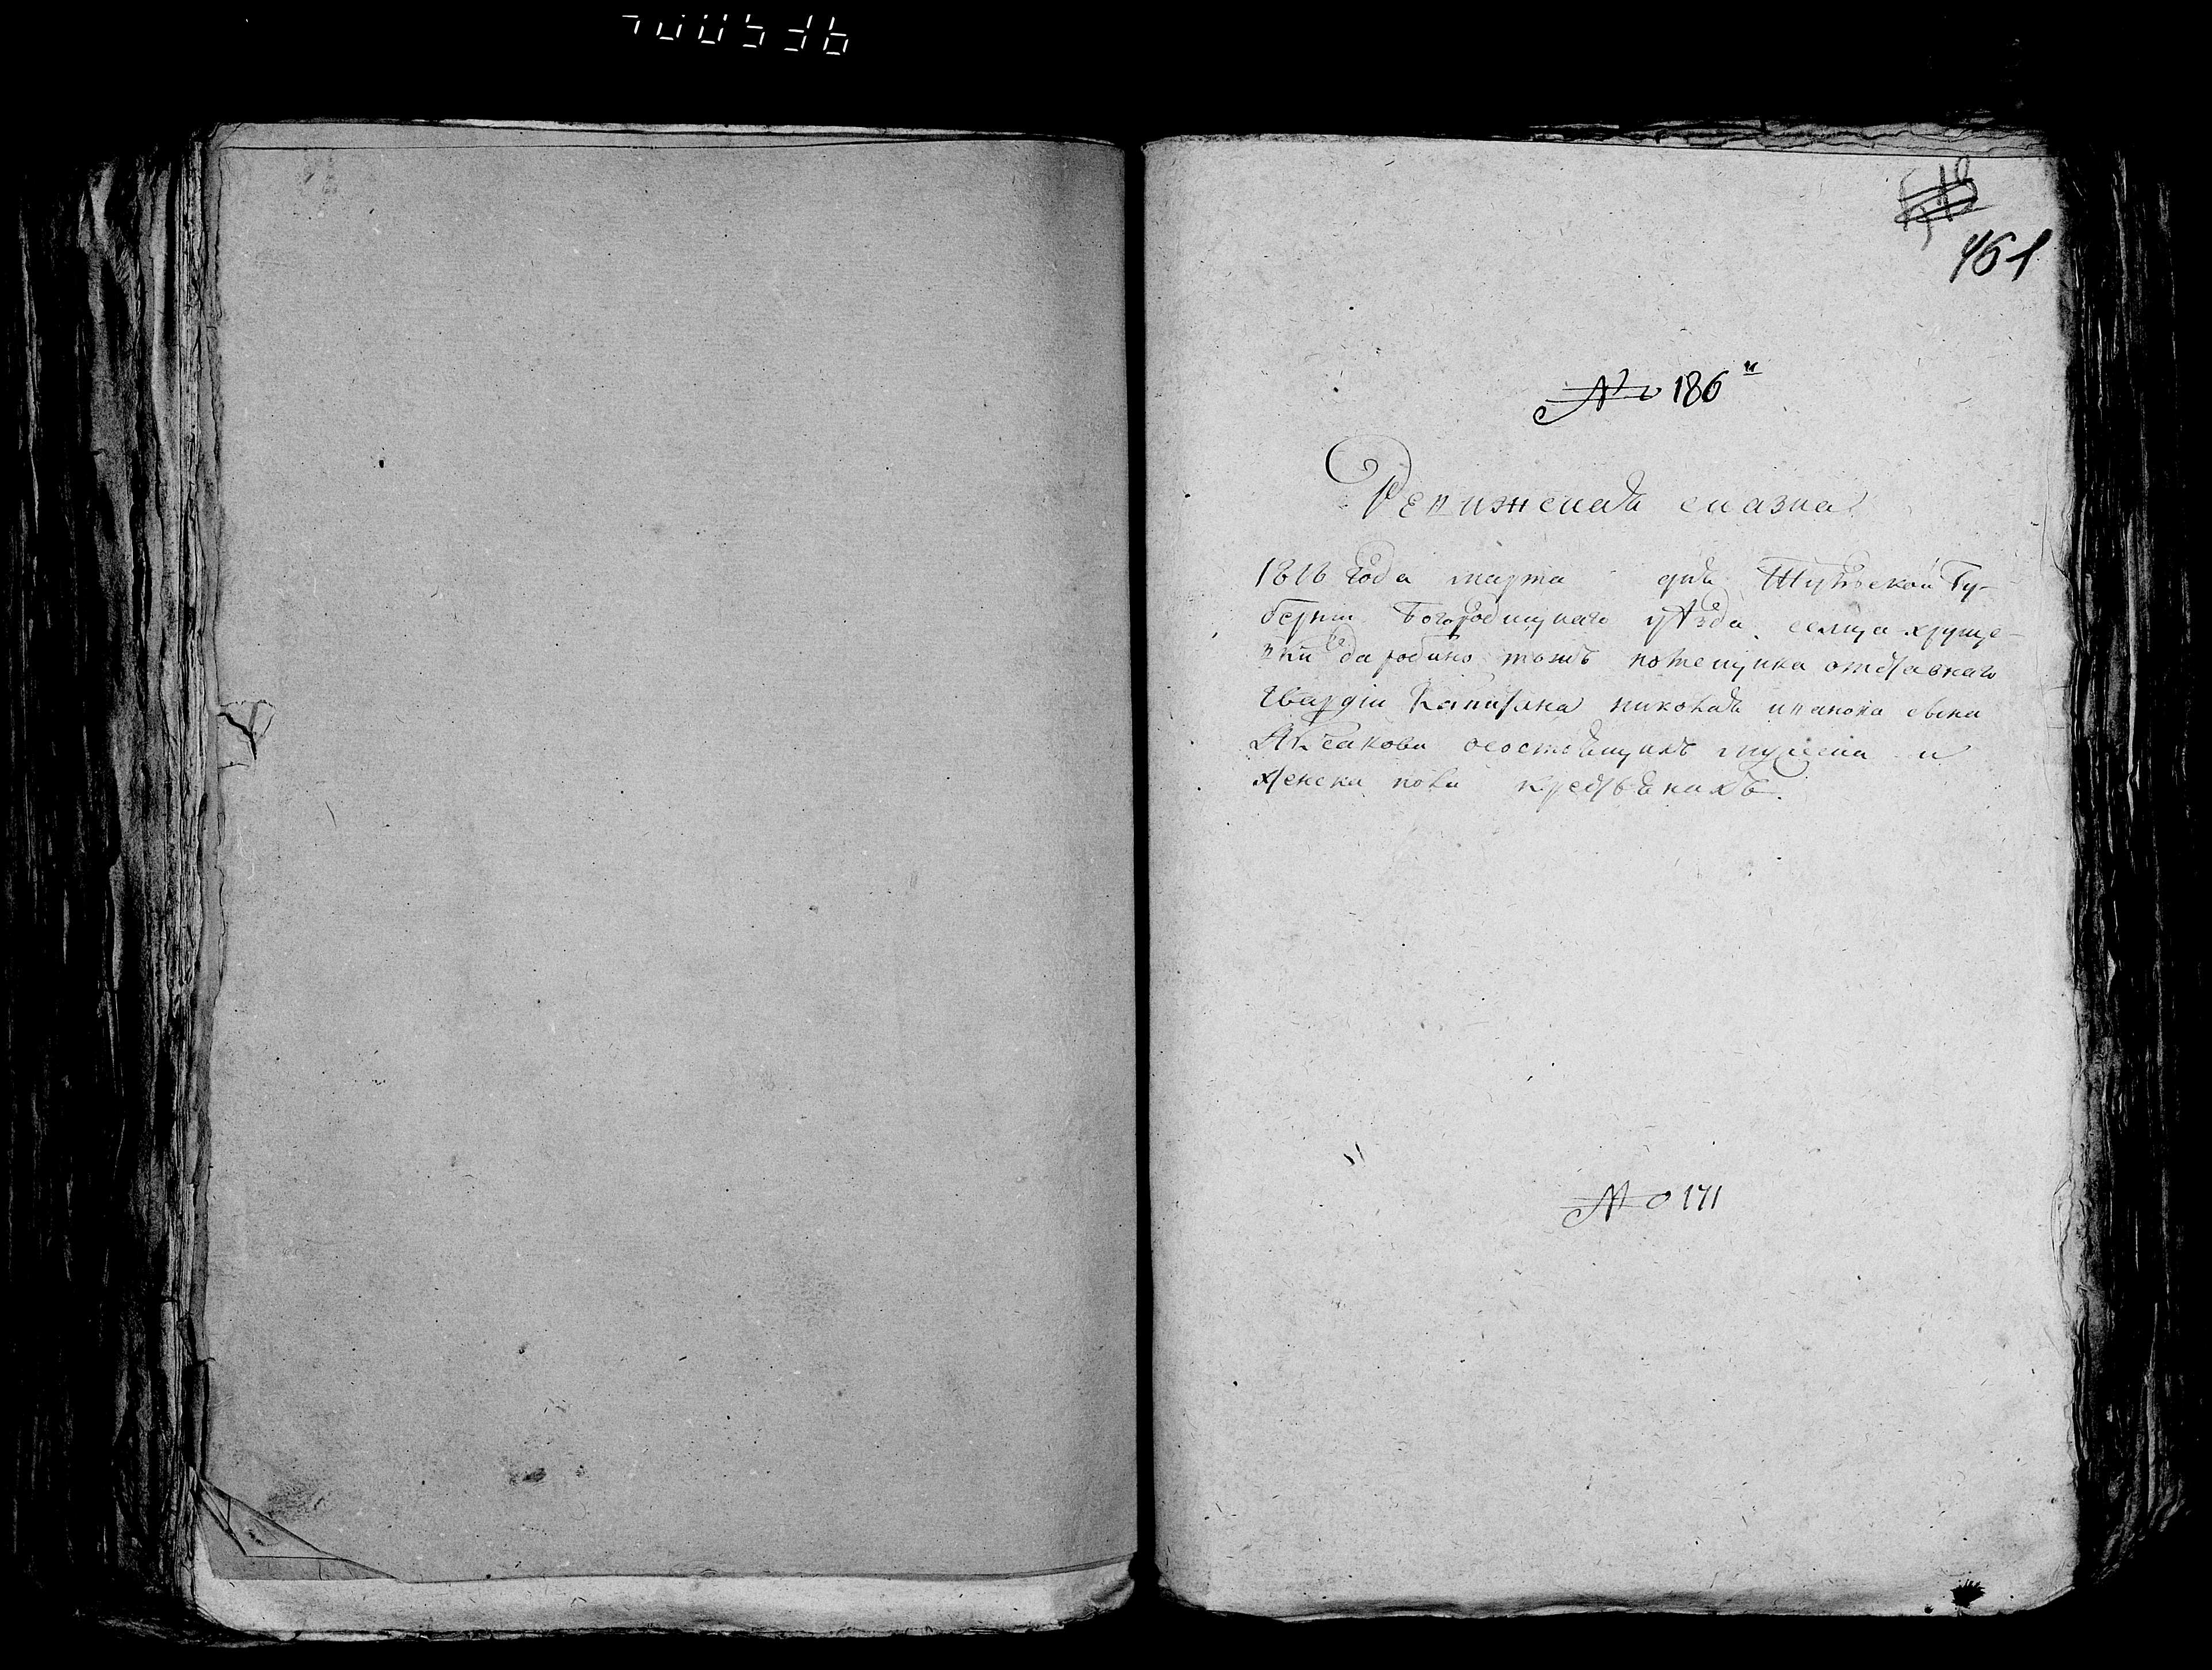 461
№ 186й
Ревижская сказка
1816 года марта дня Тулской Гу-
бернии Богородицкаго уѣзда селца хруще-
вки
помещика отставнаго
гвардіи Капитана николая иванова сына
Аксакова осостоящихъ мужеска и
женска пола крестьянахъ.
№ 171